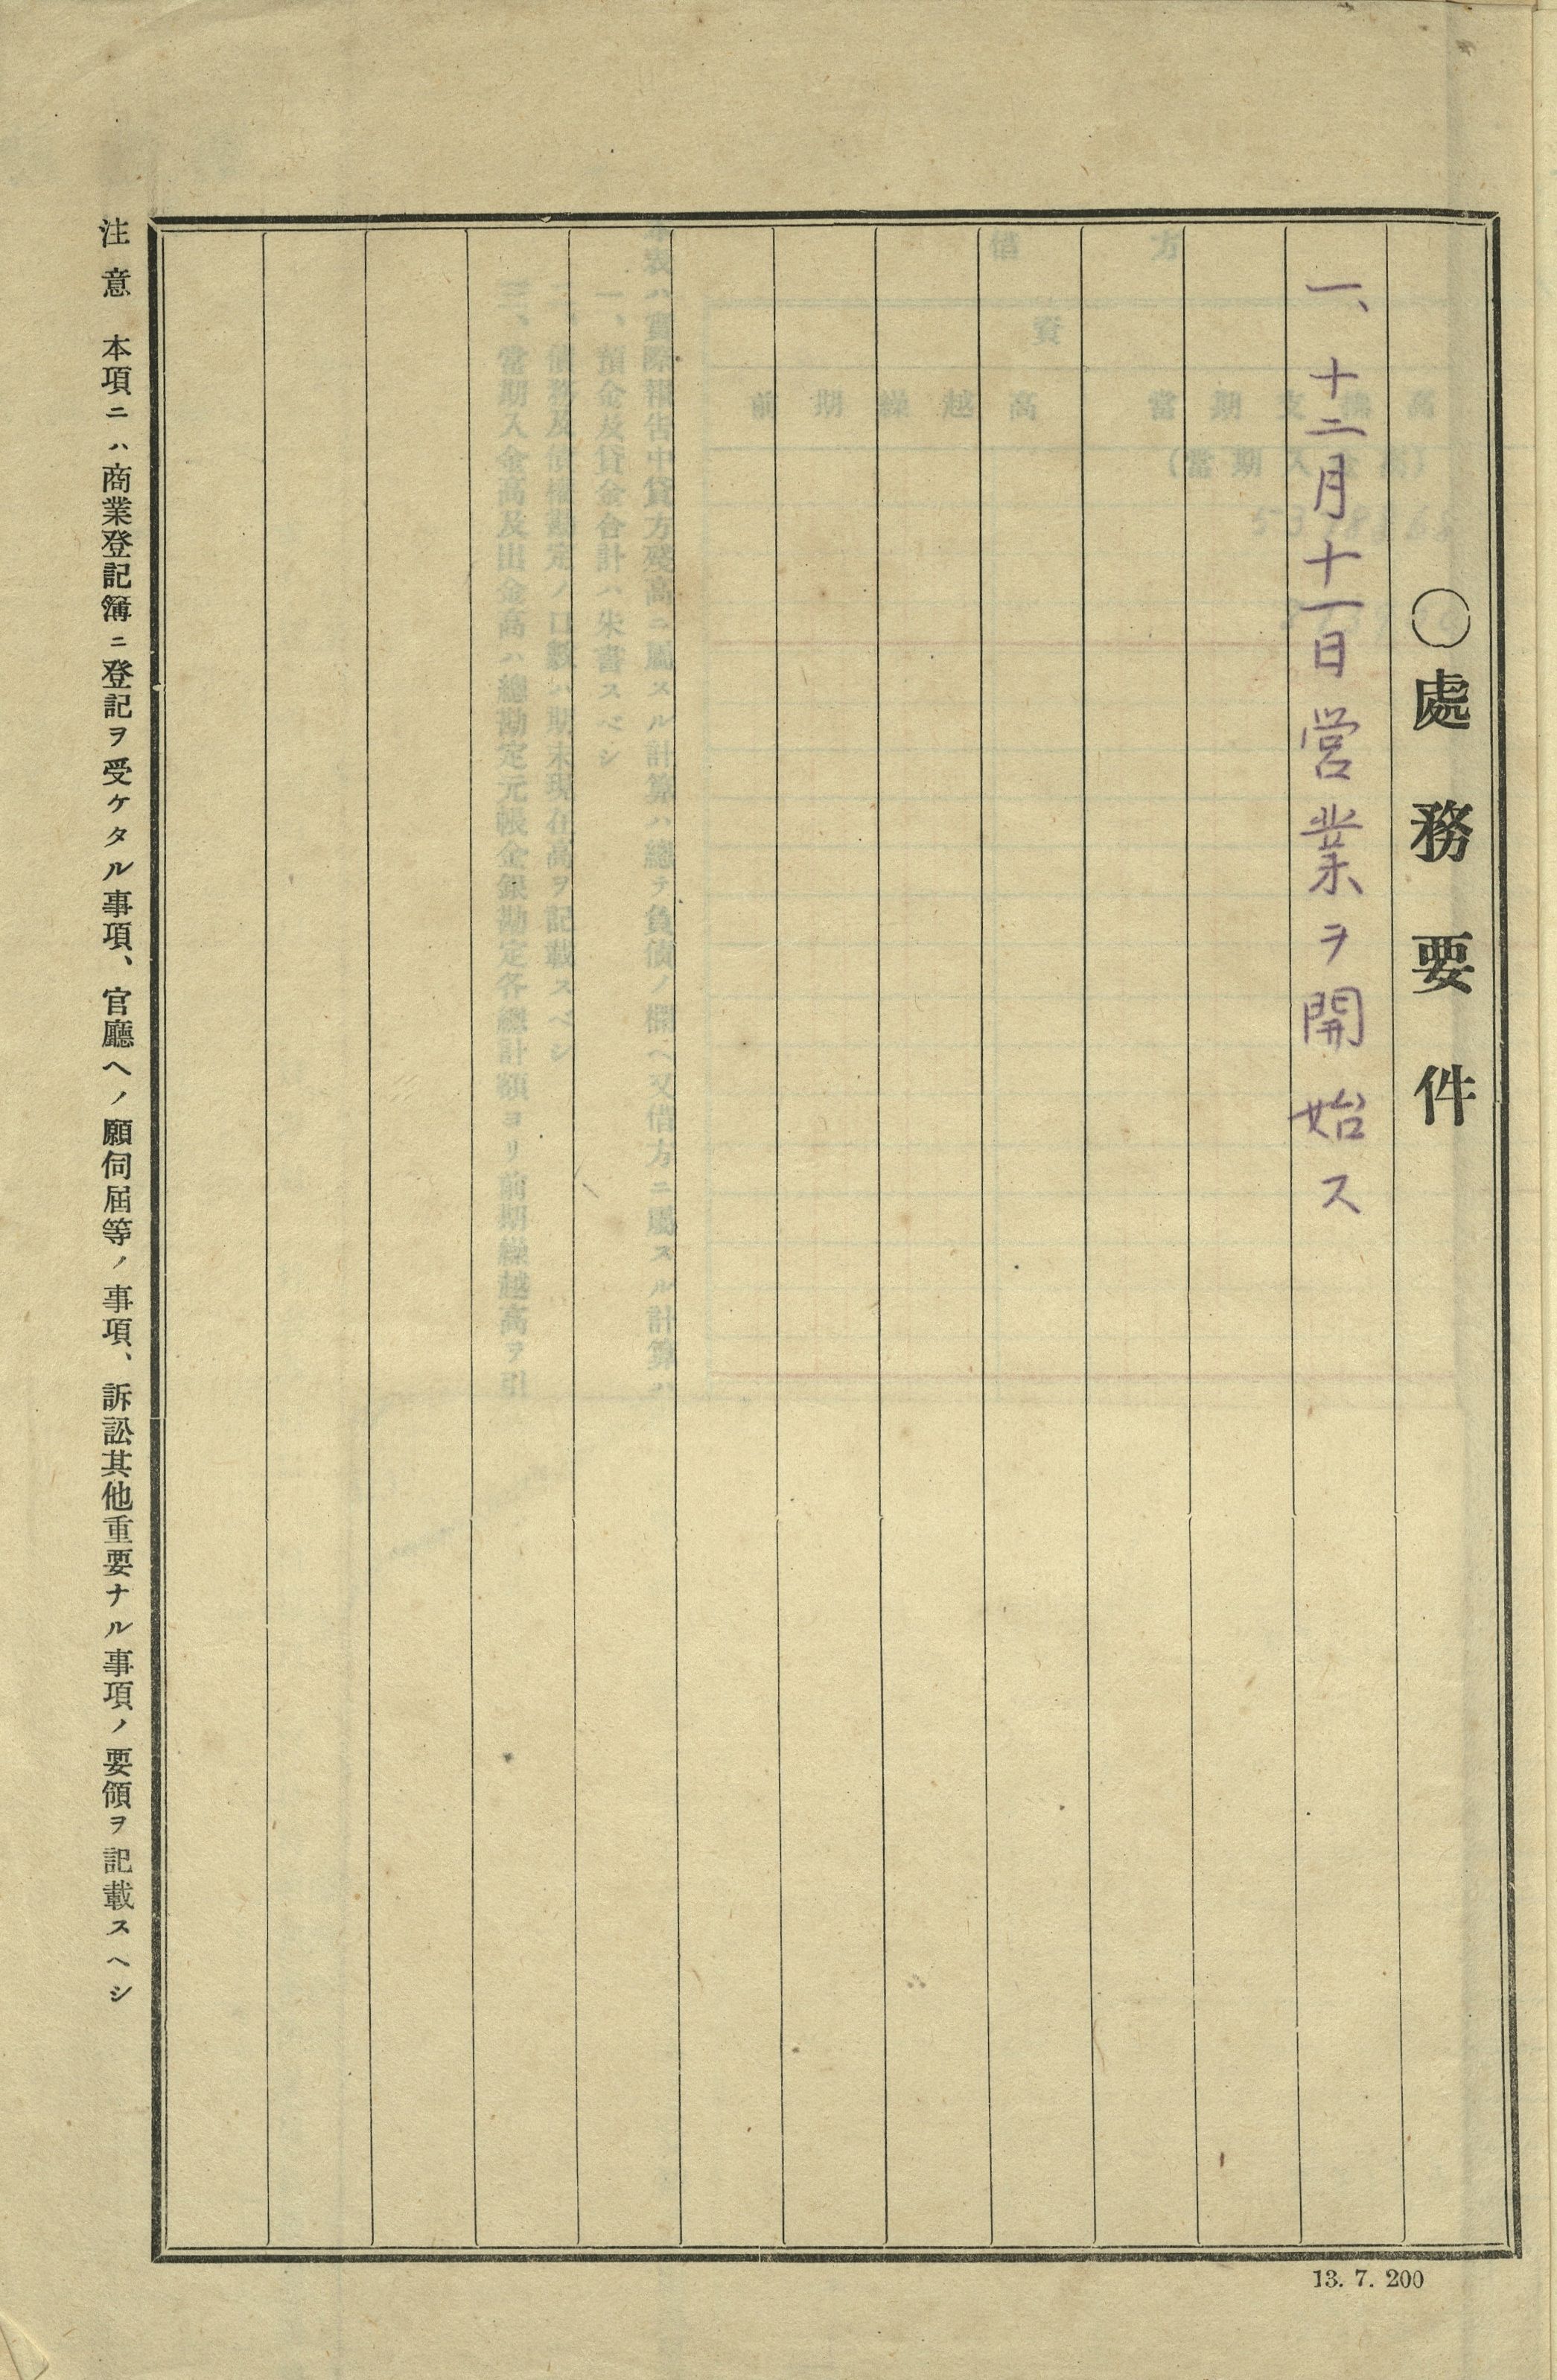 〇處務要件
一、十二月十一日営業ヲ開始ス
注意 本項ニハ商業登記簿ニ登記ヲ受ケタル事項、官廳ヘノ願伺屆等ノ事項、訴訟其他重要ナル事項ノ要領ヲ記載スヘシ
13. 7. 200